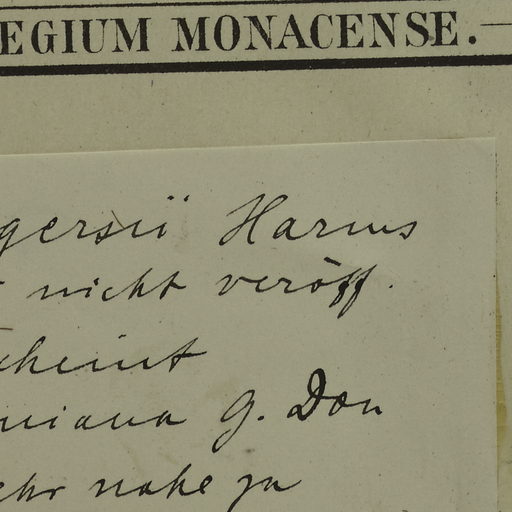 EGIUM MONACENSE.
gersii Harms
nicht veröff.
cheint
niana G. Don
ehr nahe zu